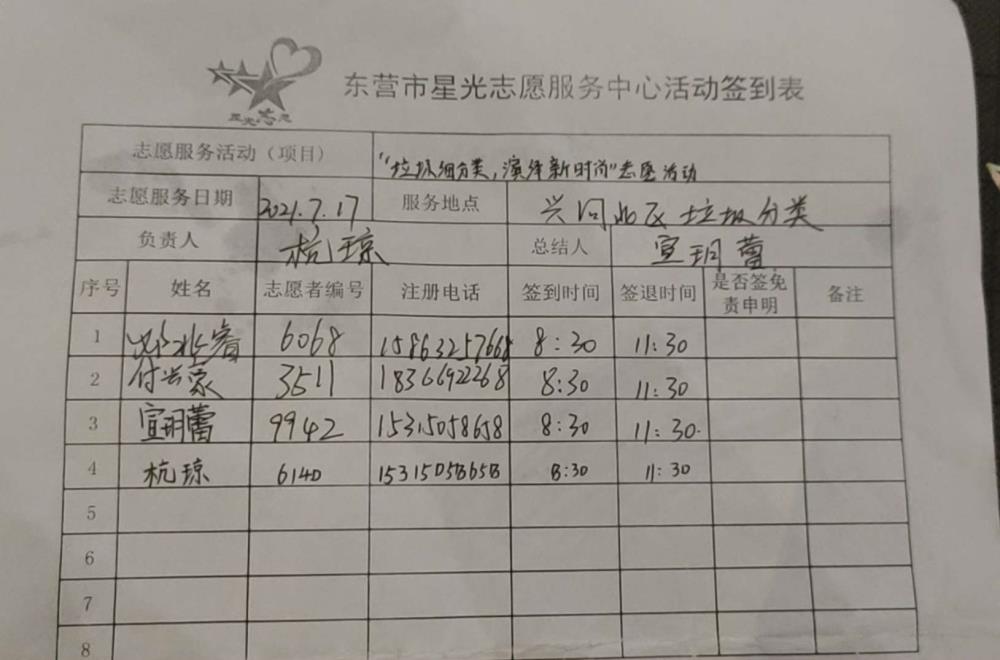 星光志愿
东营市星光志愿服务中心活动签到表
志愿服务活动（项目） "垃圾细分类，演绎新时尚"志愿活动
志愿服务日期 2021.7.17 服务地点 兴问小区垃圾分类
负责人 杭琼 总结人 宣玥蕾
序号 姓名 志愿者编号 注册电话 签到时间 签退时间 是否签免责申明 备注
1 6068 15863257668 8:30 11:30
2 付兴家 3511 18366922268 8:30 11:30
3 宣玥蕾 9942 15315058658 8:30 11:30.
4 杭琼 6140 15315058658 8:30 11:30
5
6
7
8